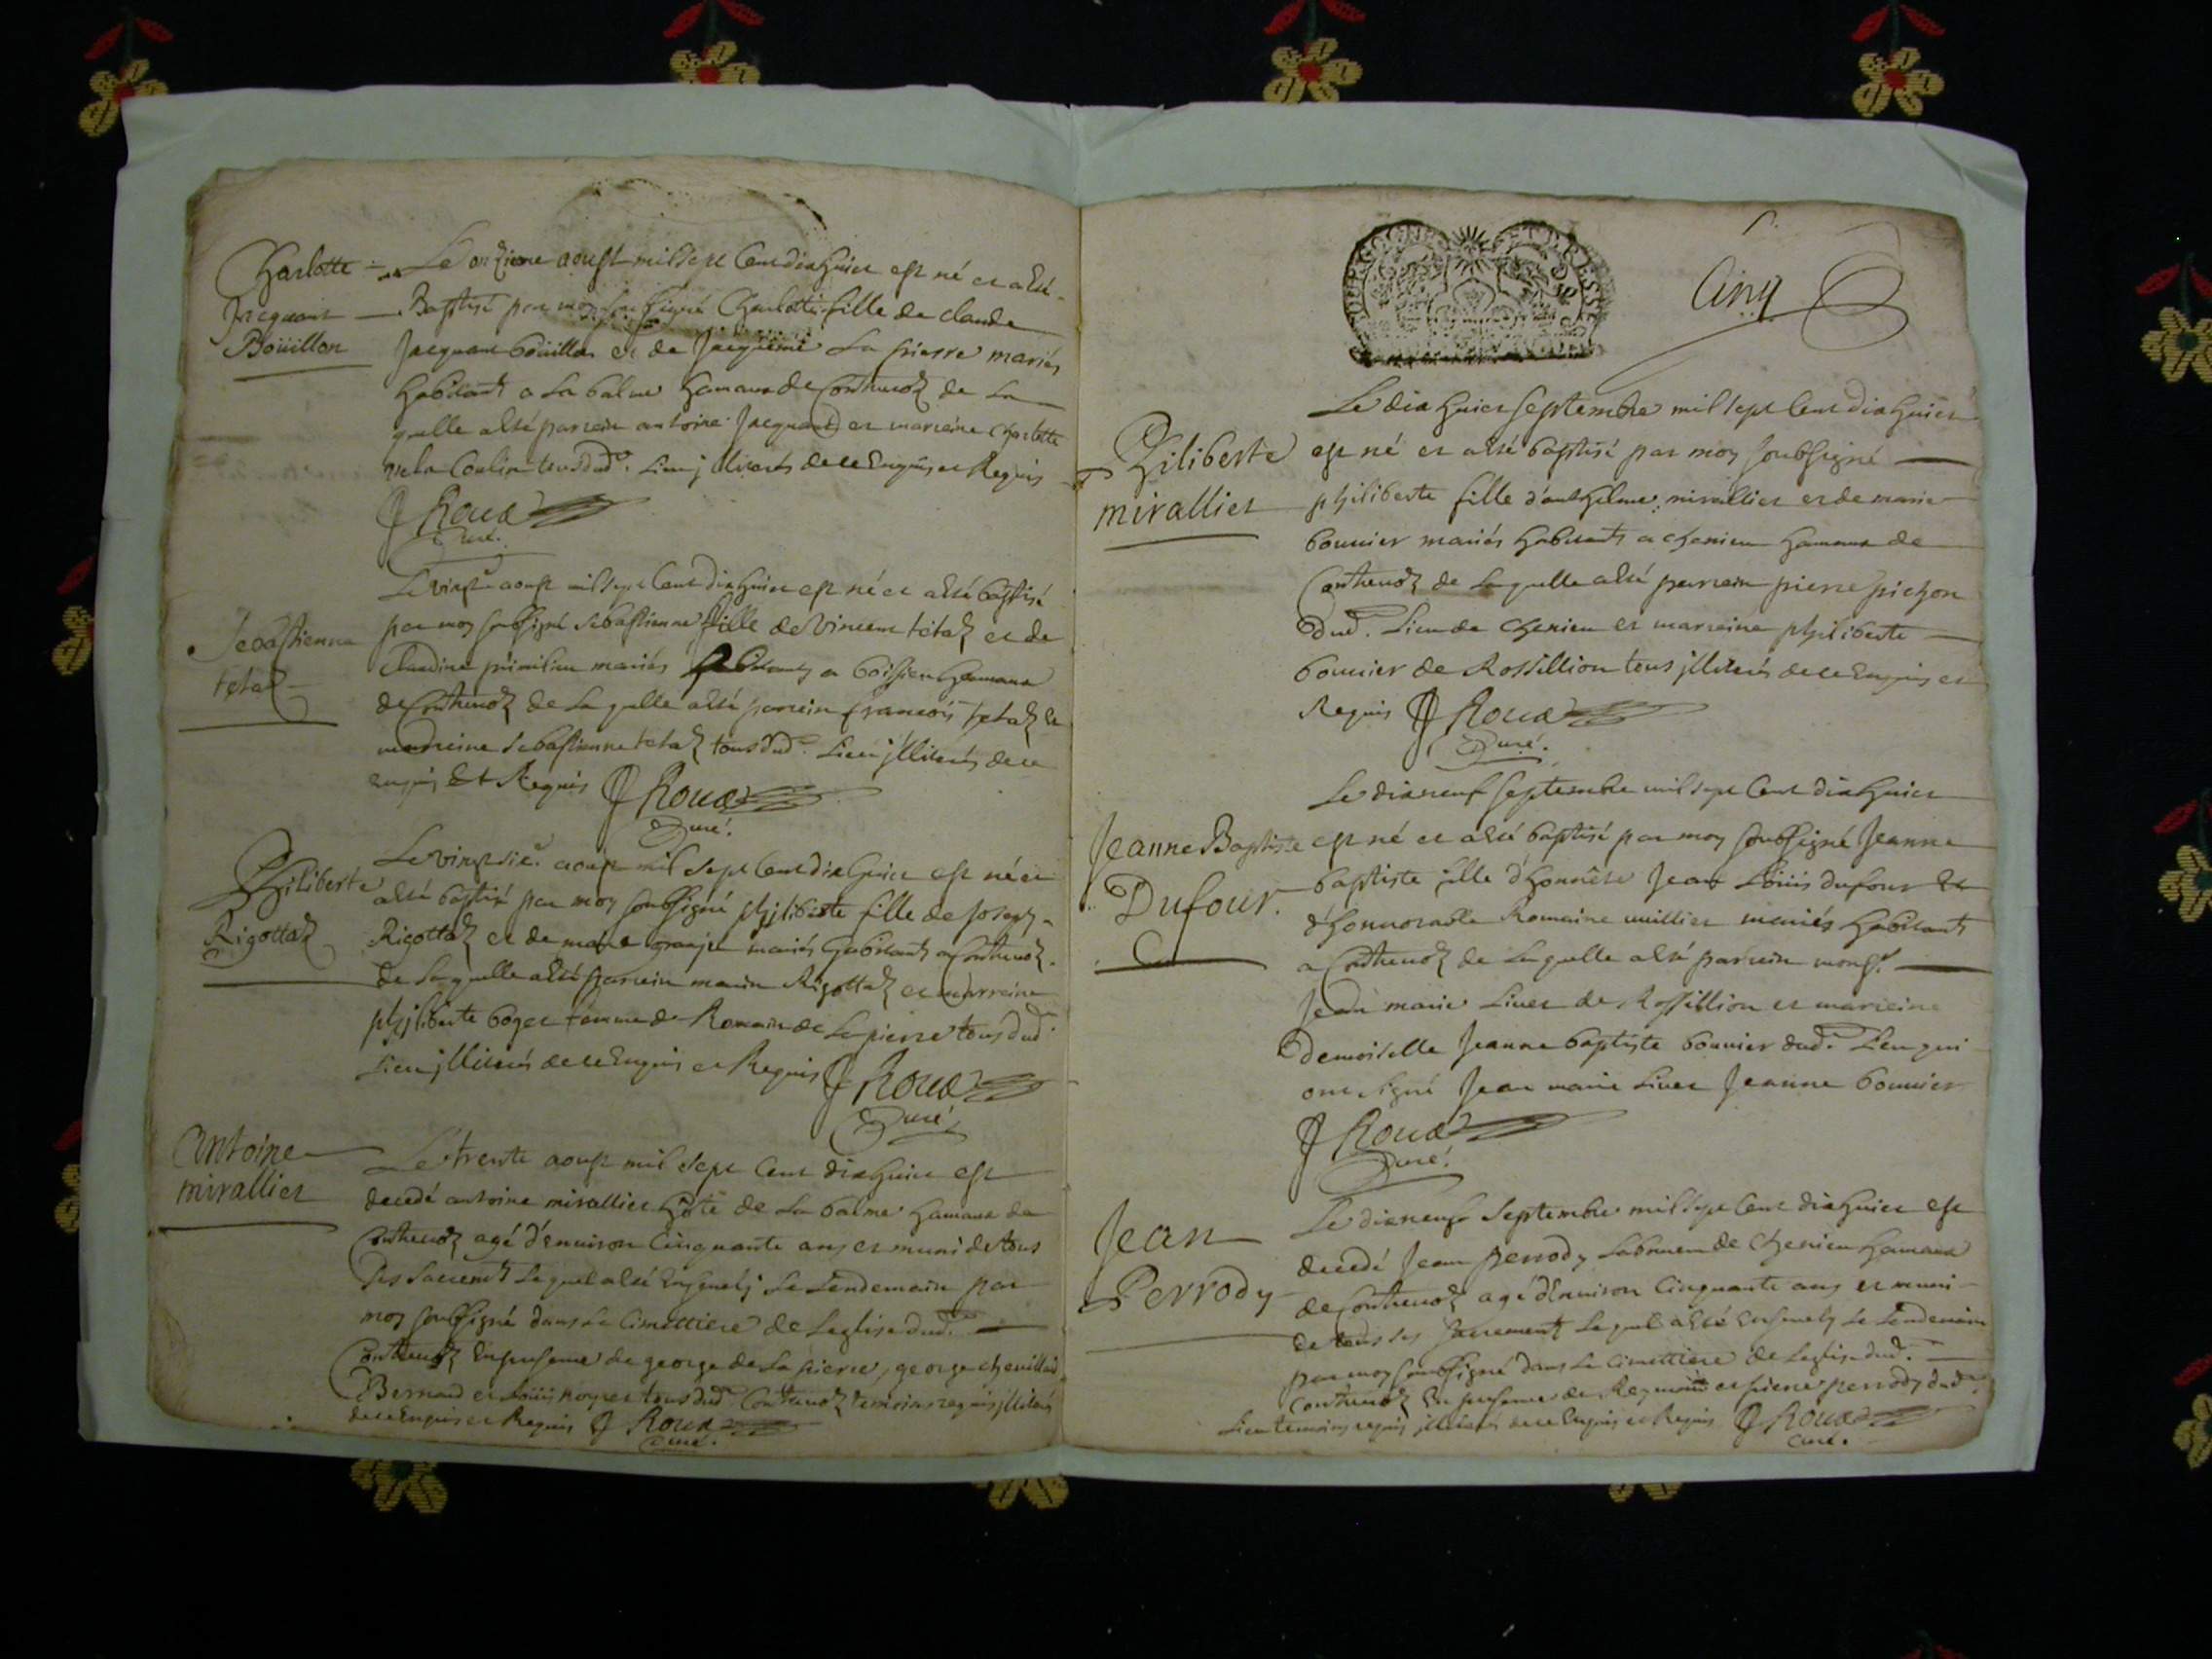 Charlotte
Jacquant
Boüillon
Le onzieme aoust mil sept Cent dix huict est né et a esté
Baptisé par moy soubsigné Charlotte fille de claude
Jacquant boüillon et de Jacquemé La pierre mariés
habitants a La balme hamaux de Contrevoz de La
quelle a esté parrein antoine Jacquand et marreine charlotte
tous dud. Lieu illiterés de ce Enquis et Requis
J Roux
Curé.
Sebastienne
tetaz
Le vingt aoust mil sept Cent dix huict est né et a esté baptisé
par moy soubsigné sebastienne fille de Vincent tetaz et de
Claudine mariés habitants a boissieu hamaux
de Contrevoz de La quelle a esté parrein francois tetaz et
marreine sebastienne tetaz tous dud. Lieu illiterés de ce
enquis Et Requis J Roux
Curé.
Philiberte
Rigottaz
Le vingt six aoust mil sept Cent dix huict est né et
a esté baptisé par moy soubsigné philiberte fille de Joseph
Rigottaz et de marie mariés habitants a Contrevoz
de La quelle a esté parrein Rigottaz et marreine
philiberte boget femme de Romain de La pierre tous dud.
Lieu illiterés de ce Enquis et Requis J Roux
Curé
Antoine
mirallier
Le trente aoust mil sept Cent dix huict est
decedé antoine mirallier hôte de La balme hamaux de
Contrevoz agé d'environ Cinquante ans et muni de tous
ses Sacrements Lequel a esté Ensevely Le Lendemain par
moy soubsigné dans Le Cimettiere de Leglise dud.
Contrevoz En presence de george de La pierre, george chevillard
Bernard et Loüis tous dud. Contrevoz temoins requis illiterés
de ce Enquis et Requis J Roux
Curé.
Cinq
Philiberte
mirallier
Le dix huict septembre mil sept Cent dix huict
est né et a esté baptisé par moy soubsigné
philiberte fille d'anthelme mirallier et de marie
bonnier mariés habitants a chenieu hamaux de
Contrevoz de Laquelle a esté parrein pierre pichon
dud. Lieu de Chenieu et marreine philiberte
bonnier de Rossillion tous illiterés de ce Enquis et
Requis J Roux
Curé.
Jeanne Baptiste
Dufour.
Le dix neuf septembre mil sept Cent dix huict
est né et a esté baptisé par moy soubsigné Jeanne
baptiste fille d'honnête Jean Loüis dufour et
d'honnorable Romaine mariés habitants
a Contrevoz de Laquelle a esté parrein mons.
Jean marie Livet de Rossillion et marreine
demoiselle Jeanne baptiste bonnier dud. Lieu qui
ont signé Jean marie Livet Jeanne bonnier
J Roux
Curé.
Jean
Perrody
Le dix neuf Septembre mil sept Cent dix huict est
decedé Jean perrody Laboureur de chenieu hamaux
de Contrevoz agé d'Environ Cinquante ans et muni
de tous ses Sacrements Lequel a esté Ensevely Le Lendemain
par moy soubsigné dans Le Cimettiere de Leglise dud.
Contrevoz En presence de Reymond et pierre perrody dud.
Lieu temoins requis illiterés de ce Enquis et Requis J Roux
Curé.